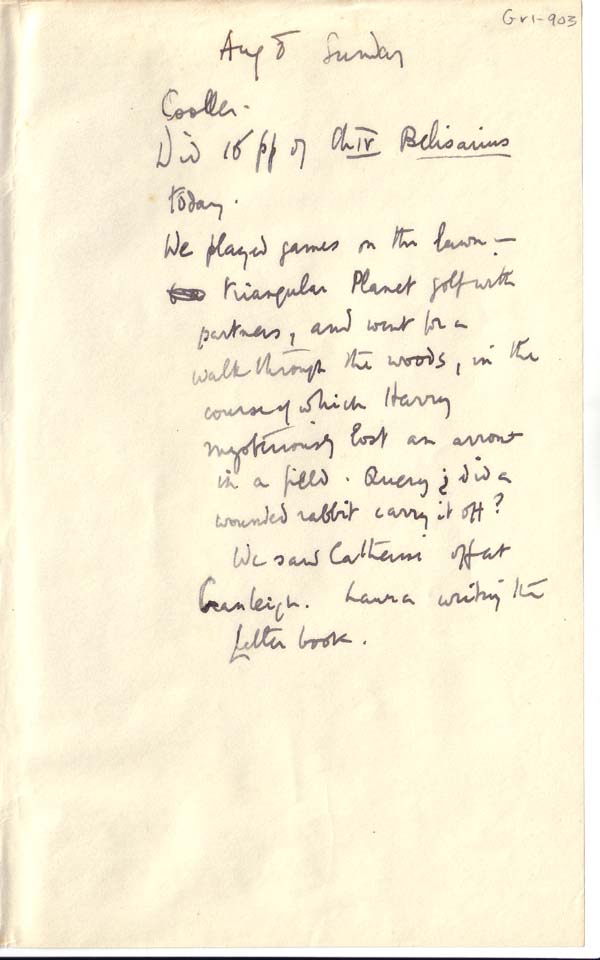 Gv1-903
Aug 8 Sunday
Cooler.
Did 16 pp of Ch IV Belisarius
today.
We played games on the lawn –
triangular Planet golf with
partners, and went for a
walk through the woods, in the
course of which Harry
mysteriously lost an arrow
in a field. Query ¿ did a
wounded rabbit carry it off?
We saw Catherine off at
Cranleigh. Laura writing the
Letter book.